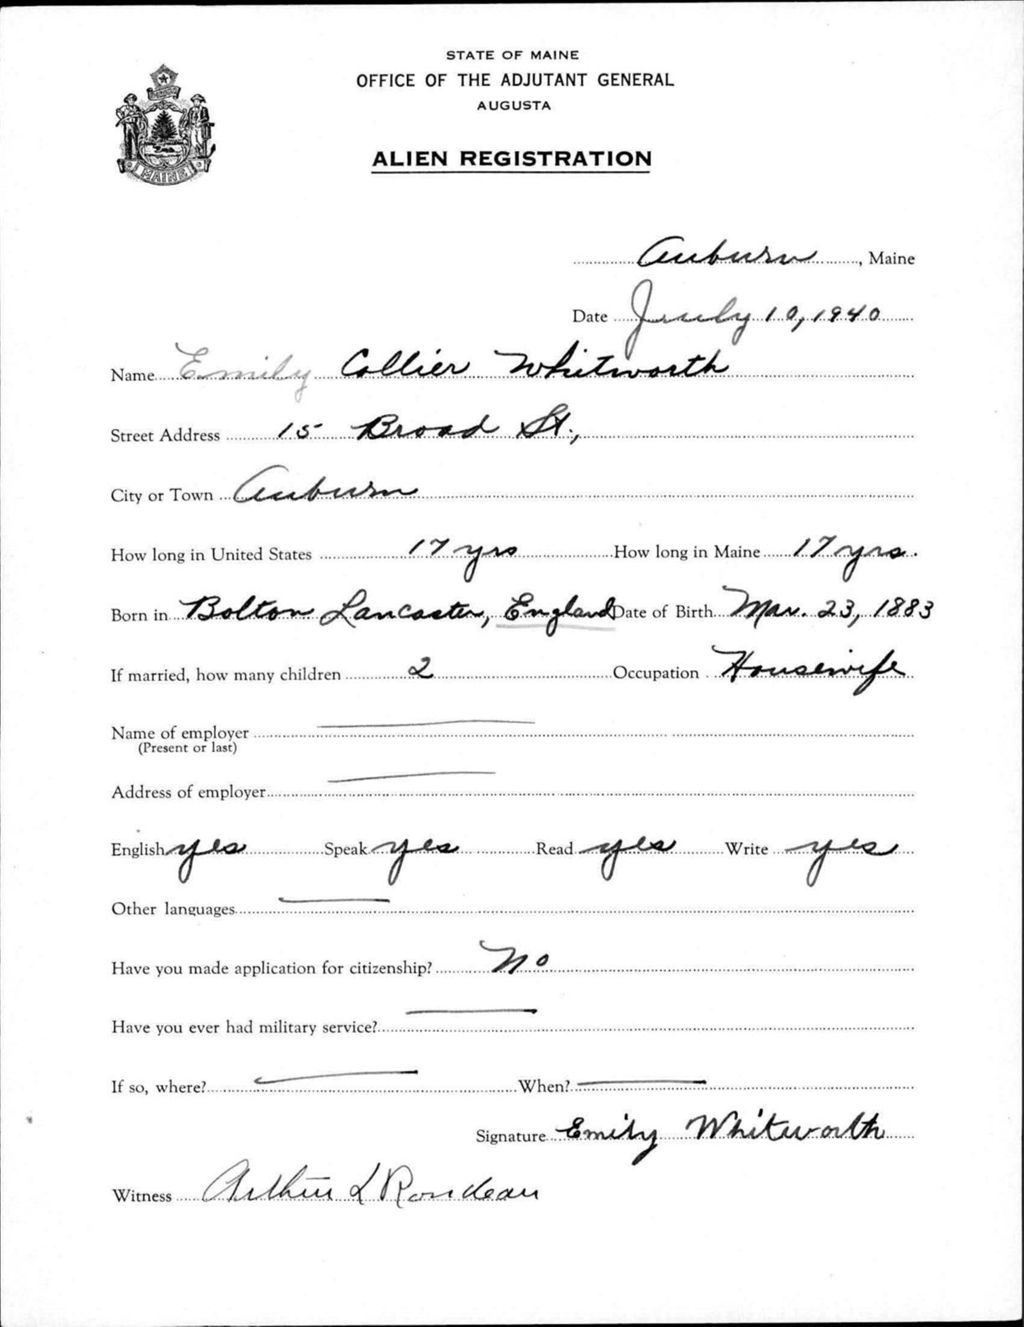 STATE OF MAINE
OFFICE OF THE ADJUTANT GENERAL
AUGUSTA
ALIEN REGISTRATION
MAINE
Auburn, Maine
Date July 10, 1940
Name Emily Collier Whitworth
Street Address 15 Broad St.,
City or Town Auburn
How long in United States 17 yrs How long in Maine 17 yrs.
Born in Bolton Lancaster, England Date of Birth Mar. 23, 1883
If married, how many children 2 Occupation Housewife
Name of employer
(Present or last)
Address of employer
English yes Speak yes Read yes Write yes
Other languages
Have you made application for citizenship? No
Have you ever had military service?
If so, where? When?
Signature Emily Whitworth
Witness Arthur L Rondeau